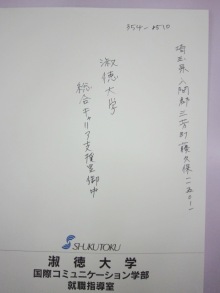 354-8510
埼玉県入間郡三芳町藤久保一一五〇-一
淑徳大学
総合キャリア支援室御中
SHUKUTOKU
淑徳大学
国際コミュニケーション学部
就職指導室